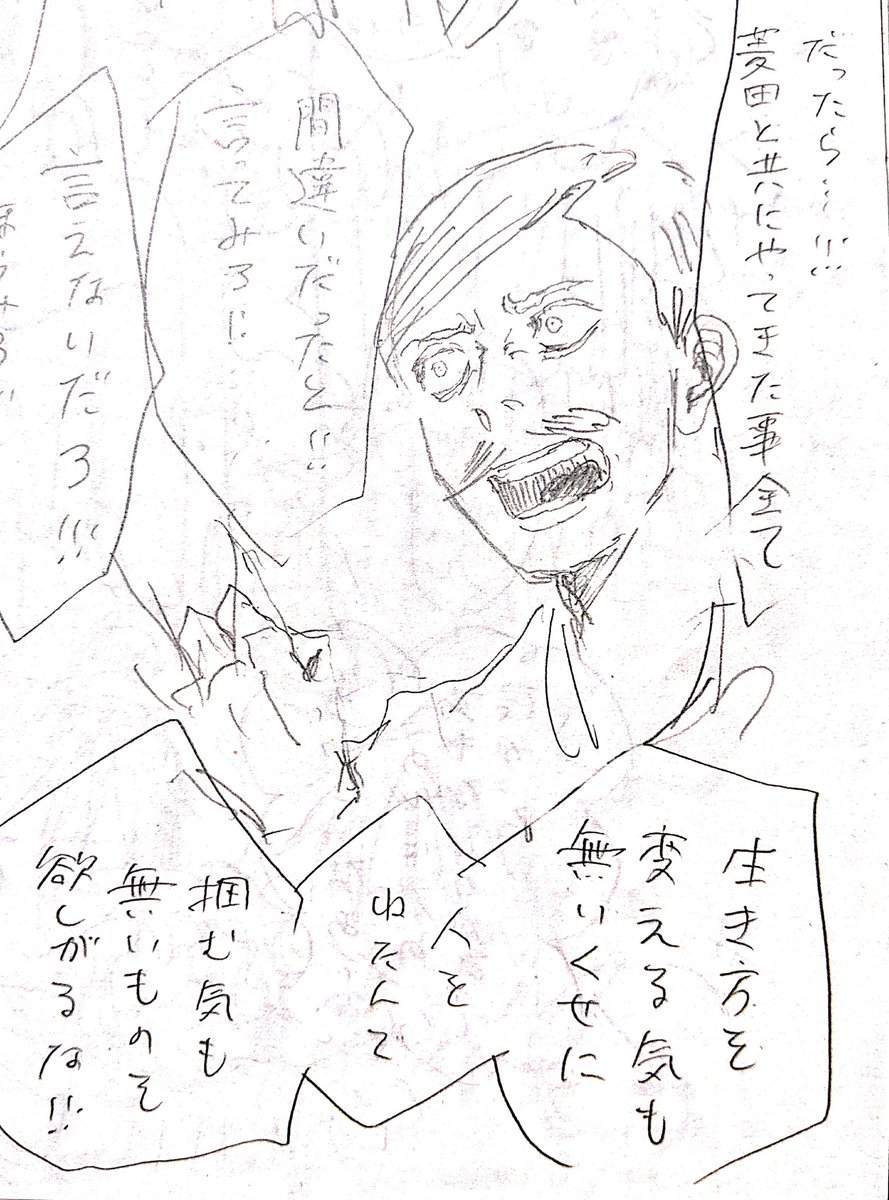 だったら…!!!
菱田と共にやってきた事全て
間違いだったと!!
言ってみろ
言えないだろ!!!
生き方を
変える気も
無いくせに
人を
ねたんで
掴む気も
無いものを
欲しがるな!!